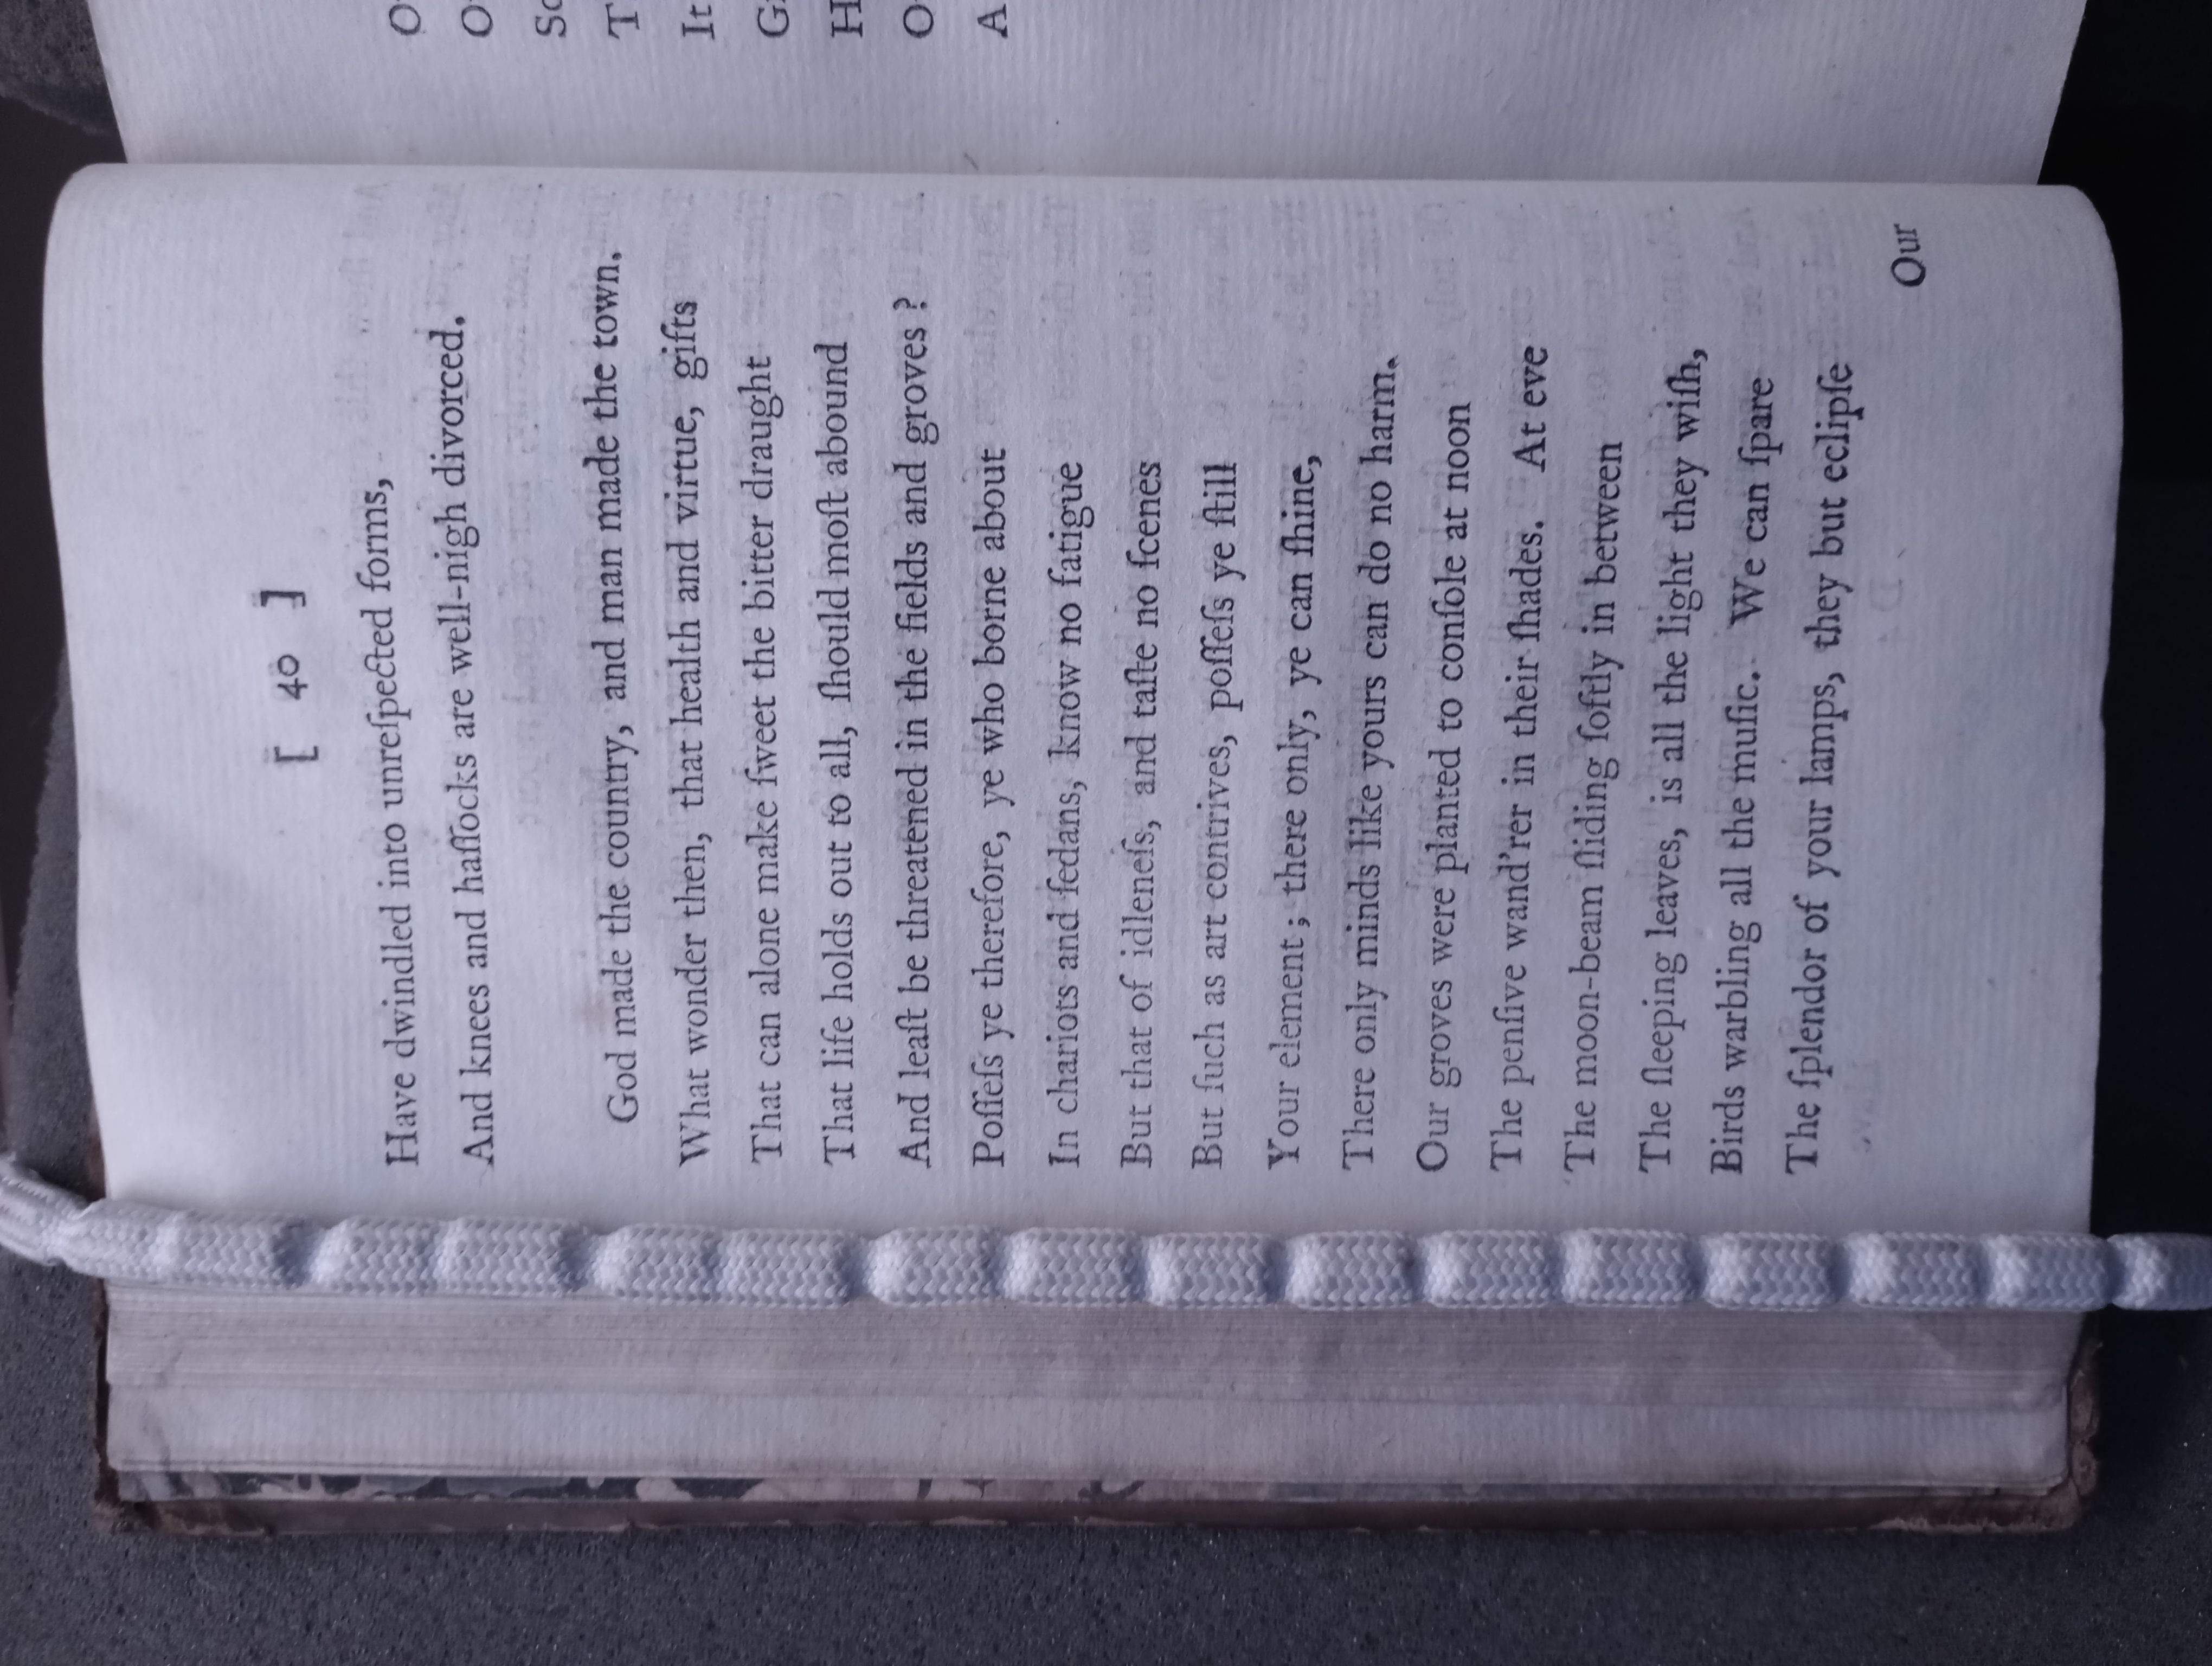 [ 40 ]
Have dwindled into unreſpected forms,
And knees and haſſocks are well-nigh divorced.
God made the country, and man made the town.
What wonder then, that health and virtue, gifts
That can alone make ſweet the bitter draught
That life holds out to all, ſhould moſt abound
And leaſt be threatened in the fields and groves ?
Poſſeſs ye therefore, ye who borne about
In chariots and ſedans, know no fatigue
But that of idleneſs, and taſte no ſcenes
But ſuch as art contrives, poſſeſs ye ſtill
Your element ; there only, ye can ſhine,
There only minds like yours can do no harm.
Our groves were planted to conſole at noon
The penſive wand'rer in their ſhades. At eve
The moon-beam ſliding ſoftly in between
The ſleeping leaves, is all the light they wiſh,
Birds warbling all the muſic. We can ſpare
The ſplendor of your lamps, they but eclipſe
Our
It
A